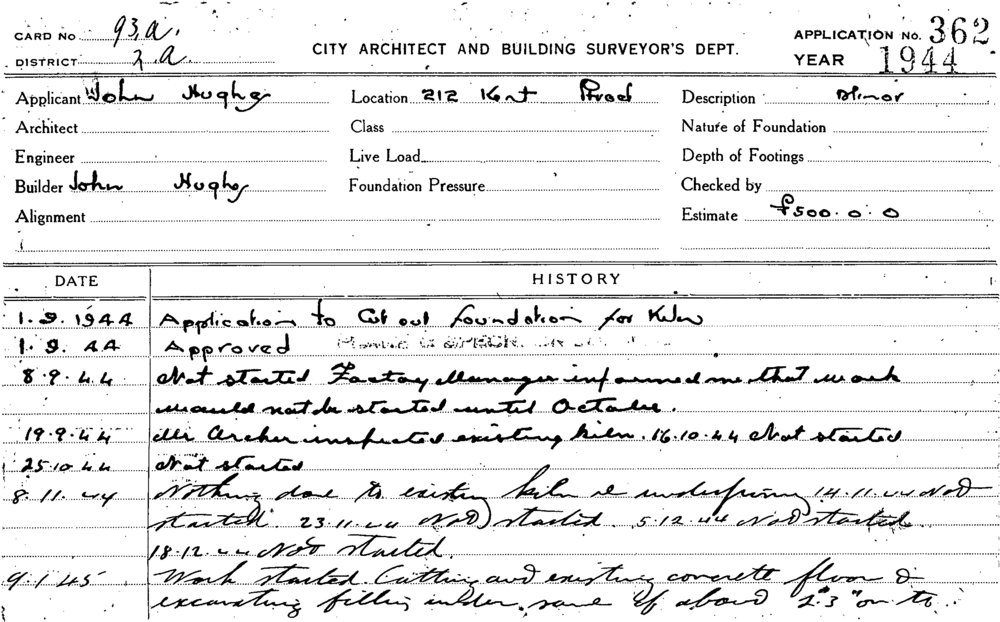 CARD No 93.a.
DISTRICT 2.a.
CITY ARCHITECT AND BUILDING SURVEYOR'S DEPT.
APPLICATION No. 362
YEAR 1944
Applicant John Hughes Location 212 Kent Road Description Minor
Architect Class Nature of Foundation
Engineer Live Load Depth of Footings
Builder John Hughes Foundation Pressure Checked by
Alignment Estimate £500.0.0
DATE HISTORY
1.9.1944 Application to Cut out foundation for Kiln
1.9.44 Approved
8.9.44 Not started Factory Manager informed me that work
would not be started until October.
19.9.44 Mr Archer inspected existing kiln. 16.10.44 Not started
25.10.44 Not started
8.11.44 Nothing done to existing kiln re underpinning 14.11.44 Not
started. 23.11.44 Not started. 5.12.44 Not started.
18.12.44 Not started.
9.1.45 Work started. Cutting existing concrete floor &
excavating filling under same of about 2'3" on to